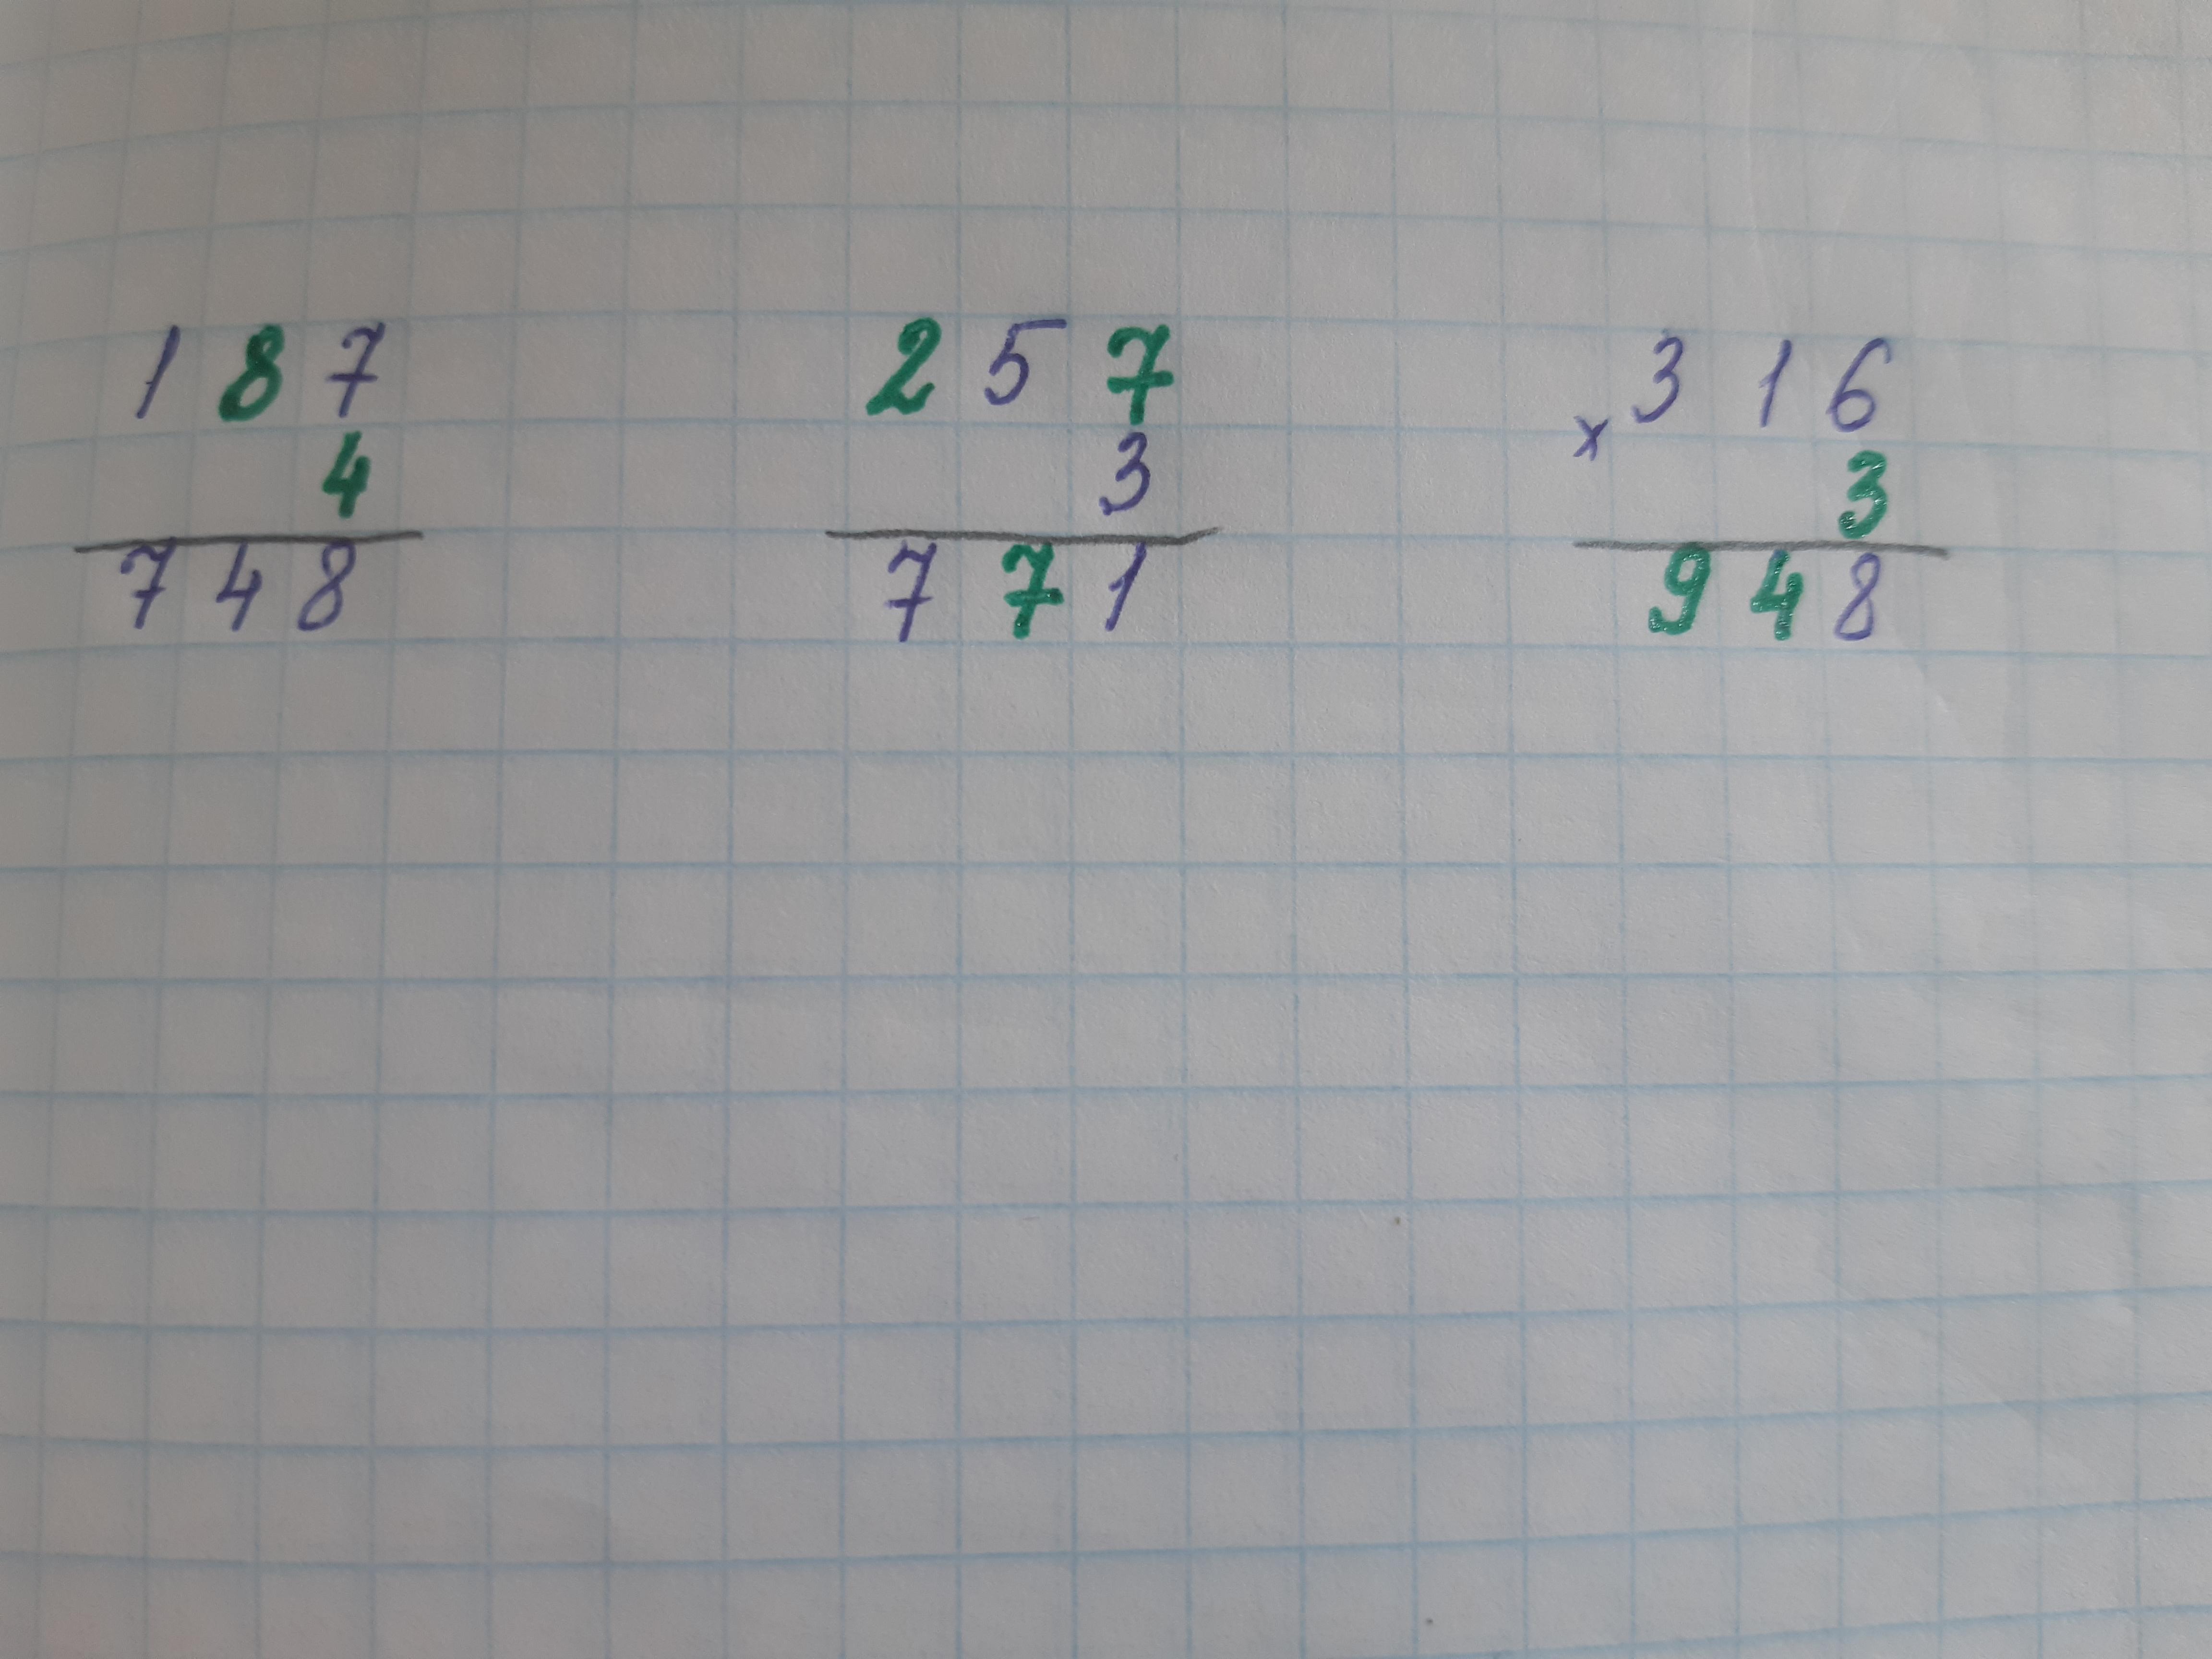 187
4
748
257
3
771
× 316
3
948